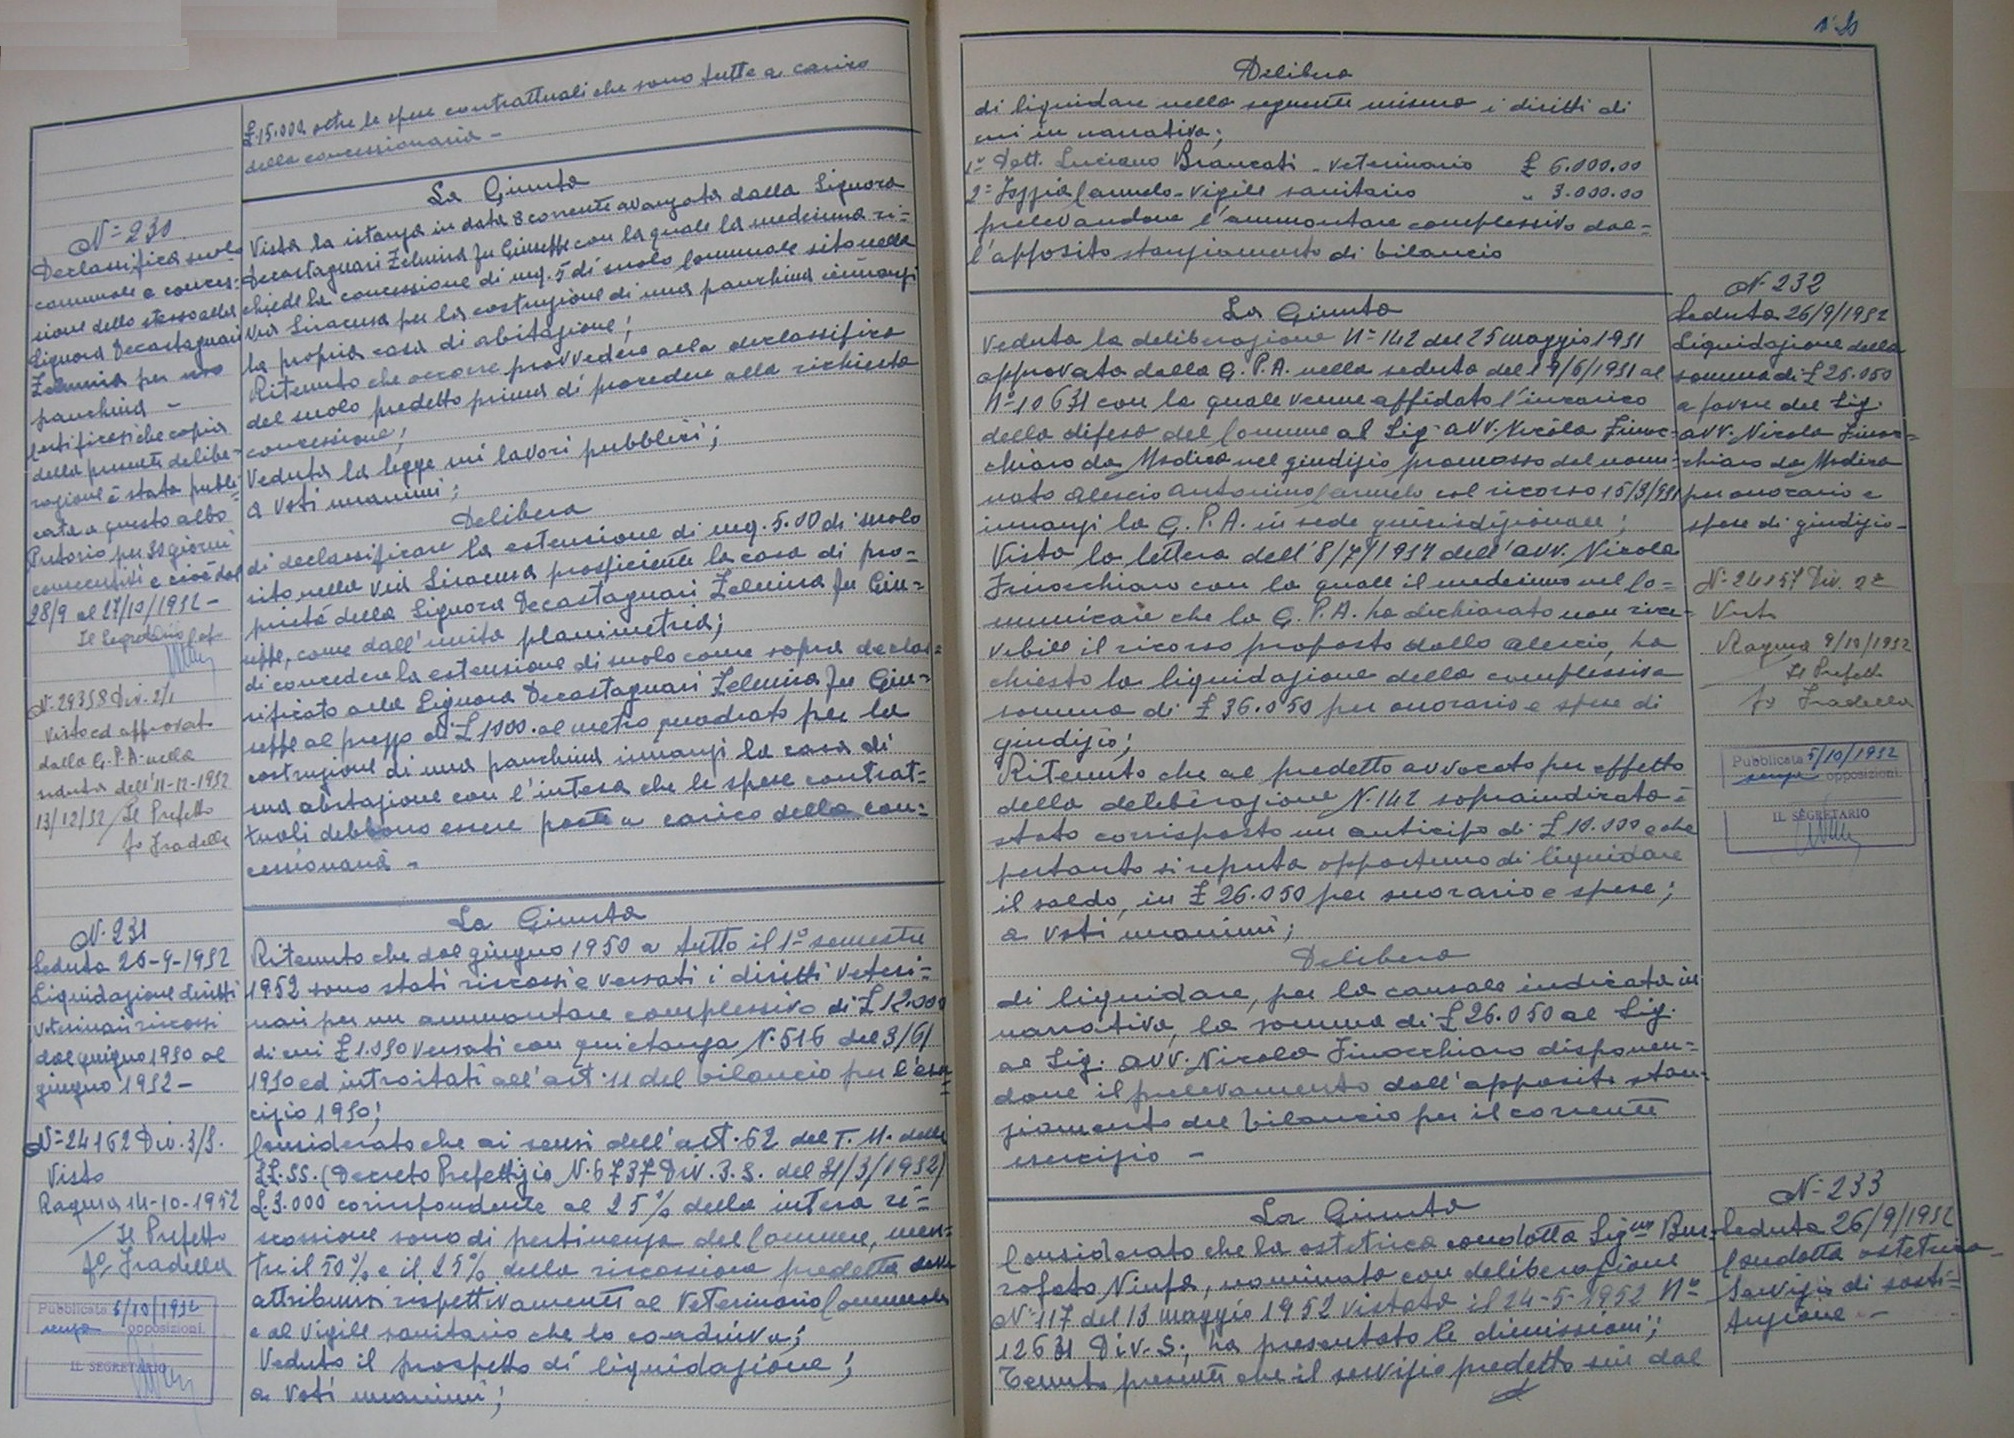 £. 15.000 oltre le spese contrattuali che sono tutte a carico
della concessionaria -
N° 230
Declassifica suolo
comunale e conces-
sione dello stesso alla
Signora Decastagnari
Zelmira per uso
panchina -
Certificasi che copia
della presente delibe-
razione è stata pubbli-
cata a questo albo
Pretorio per 30 giorni
consecutivi e cioè dal
28/9 al 27/10/1952 -
Il Segretario
N. 29358 Div. 2/1
Visto ed approvato
dalla G.P.A. nella
seduta dell'11-12-1952
13/12/52 Il Prefetto
fo Fradella
La Giunta
Vista la istanza in data 8 corrente avanzata dalla Signora
Decastagnari Zelmira fu Giuseppe con la quale la medesima ri-
chiede la concessione di mq. 5 di suolo Comunale sito nella
Via Siracusa per la costruzione di una panchina innanzi
la propria casa di abitazione;
Ritenuto che occorre provvedere alla declassifica
del suolo predetto prima di procedere alla richiesta
concessione;
Veduta la legge sui lavori pubblici;
a voti unanimi;
Delibera
di declassificare la estensione di mq. 5.00 di suolo
sito nella Via Siracusa prospiciente la casa di pro-
prietà della Signora Decastagnari Zelmira fu Giu-
seppe, come dall'unita planimetria;
di concedere la estensione di suolo come sopra declas-
sificato alla Signora Decastagnari Zelmira fu Giu-
seppe al prezzo di £ 1000 al metro quadrato per la
costruzione di una panchina innanzi la casa di
sua abitazione con l'intesa che le spese contrat-
tuali debbono essere poste a carico della con-
cessionaria -
N. 231
Seduta 26-9-1952
Liquidazione diritti
veterinari riscossi
dal giugno 1950 al
giugno 1952 -
N° 24162 Div. 3/S.
Visto
Ragusa 14-10-1952
Il Prefetto
fo Fradella
Pubblicata 5/10/1952
senza opposizioni.
IL SEGRETARIO
La Giunta
Ritenuto che dal giugno 1950 a tutto il 1° semestre
1952 sono stati riscossi e versati i diritti veteri-
nari per un ammontare complessivo di £ 12.000
di cui £ 1.050 versati con quietanza N. 516 del 3/6/
1950 ed introitati all'art. 11 del bilancio per l'eser-
cizio 1950;
Considerato che ai sensi dell'art. 62 del T. U. delle
LL. SS. (Decreto Prefettizio N. 6737 Div. 3. S. del 31/3/1952)
£. 3.000 corrispondente al 25% della intera ri-
scossione sono di pertinenza del Comune, men-
tre il 50% e il 25% della riscossione predetta
attribuirsi rispettivamente al Veterinario Comunale
e al Vigile sanitario che lo coadiuva;
Veduto il prospetto di liquidazione;
a voti unanimi;
Delibera
di liquidare nella seguente misura i diritti di
cui in narrativa;
1° Dott. Luciano Brancati - veterinario £ 6.000.00
2° Carmelo - vigile sanitario " 3.000.00
prelevandone l'ammontare complessivo dal-
l'apposito stanziamento di bilancio
La Giunta
Veduta la deliberazione N° 142 del 25 maggio 1951
approvata dalla G. P. A. nella seduta del 19/6/1951 al
N° 10631 con la quale venne affidato l'incarico
della difesa del Comune al Sig. avv. Nicola Finoc-
chiaro da Modica nel giudizio promosso dal nomi-
nato Alescio Antonino Carmelo col ricorso 15/3/951
innanzi la G. P. A. in sede giurisdizionale;
Vista la lettera dell'8/7/1954 dell'avv. Nicola
Finocchiaro con la quale il medesimo nel co-
municare che la G. P. A. ha dichiarato non rice-
vibile il ricorso proposto dallo Alescio, ha
chiesto la liquidazione della complessiva
somma di £ 36.050 per onorario e spese di
giudizio;
Ritenuto che al predetto avvocato per effetto
della deliberazione N. 142 sopraindicata è
stato corrisposto un anticipo di £ 10.000 e che
pertanto si reputa opportuno di liquidare
il saldo, in £ 26.050 per onorario e spese;
a voti unanimi;
Delibera
di liquidare, per la causale indicata in
narrativa, la somma di £ 26.050 al Sig.
al Sig. avv. Nicola Finocchiaro disponen-
done il prelevamento dall'apposito stan-
ziamento del bilancio per il corrente
esercizio -
N° 232
Seduta 26/9/1952
Liquidazione della
somma di £ 26.050
a favore del Sig.
avv. Nicola Finoc-
chiaro da Modica
per onorario e
spese di giudizio -
N° 24157 Div. 2a
Visto
Ragusa 9/10/1952
Il Prefetto
fo Fradella
Pubblicata 5/10/1952
senza opposizioni.
IL SEGRETARIO
La Giunta
Considerato che la ostetrica condotta Sig.na Bur-
rofato Ninfa, nominata con deliberazione
N° 117 del 13 maggio 1952 vistata il 24-5-1952 N°
12631 Div. S., ha presentato le dimissioni;
Tenuto presente che il servizio predetto sin dal
N° 233
Seduta 26/9/1952
Condotta ostetrica -
Servizio di sosti-
tuzione -